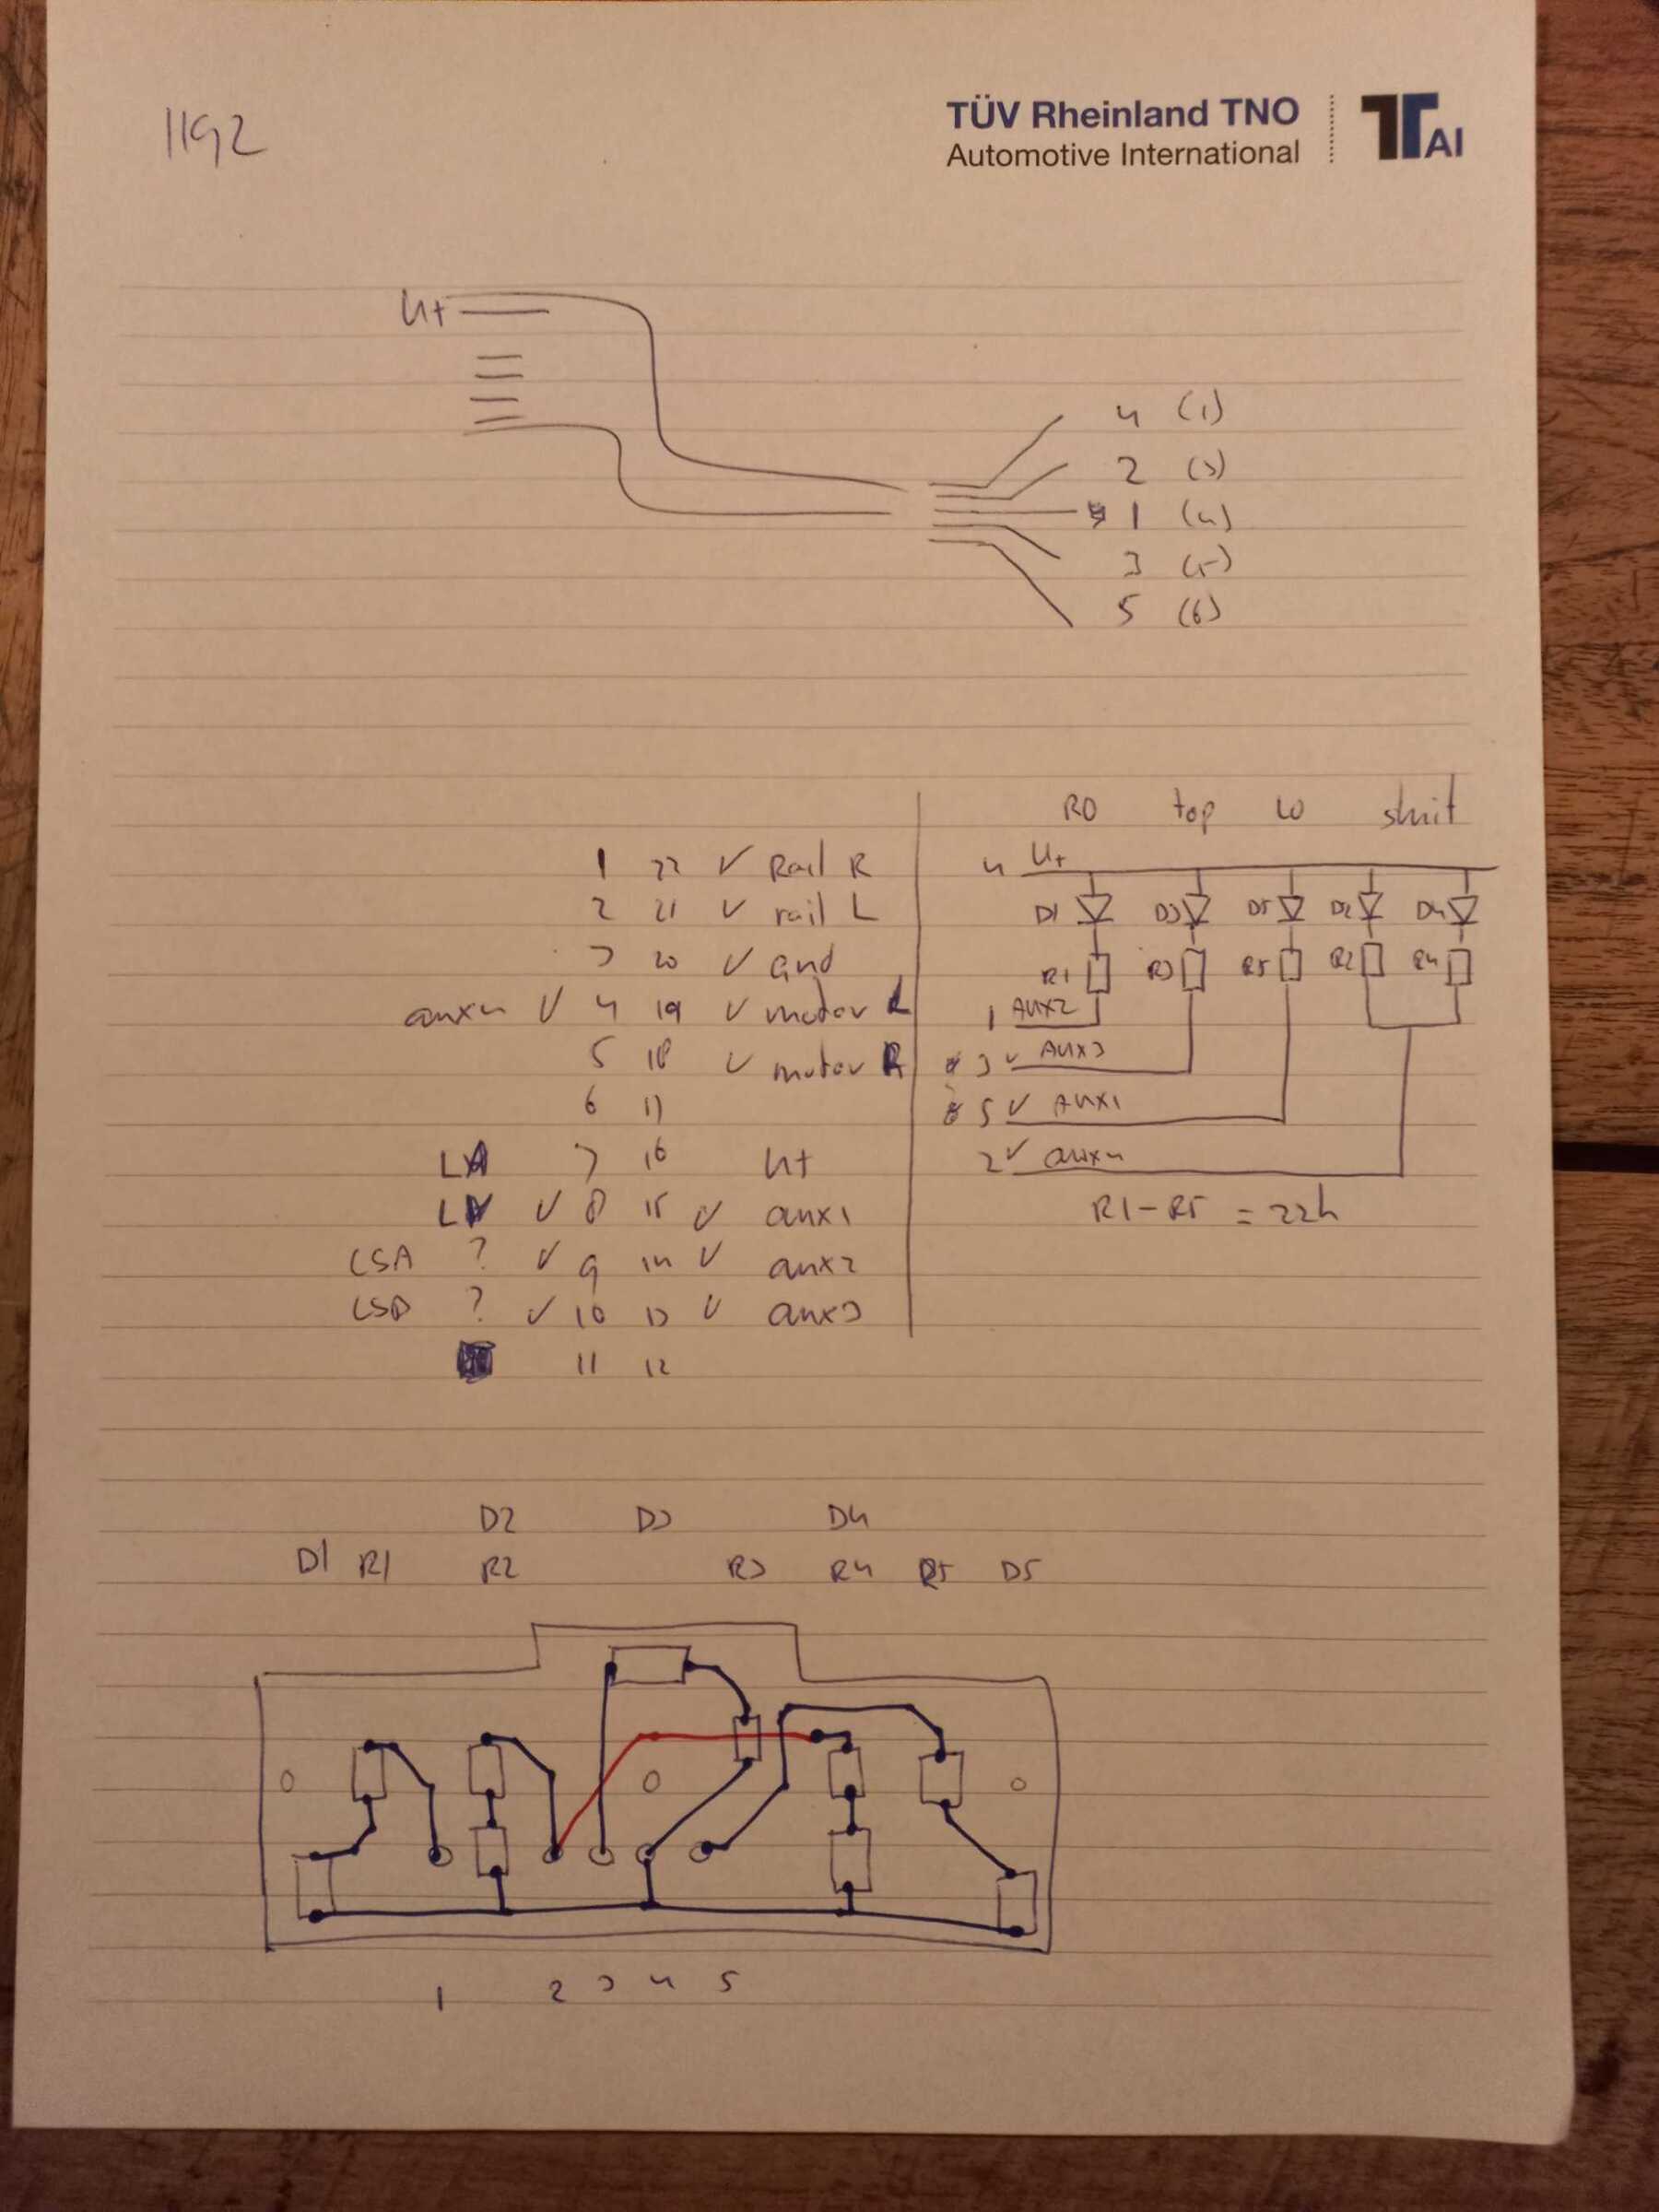 1192
TÜV Rheinland TNO
Automotive International
TTAI
U+
4 (1)
2 (3)
1 (4)
3 (5)
5 (6)
RO top LO sluit
1 22 ✓ Rail R
2 21 ✓ rail L
3 20 ✓ gnd
aux4 ✓ 4 19 ✓ motor L
5 18 ✓ motor R
6 17
7 16 U+
✓ 8 15 ✓ aux1
LSA ? ✓ 9 14 ✓ aux2
LSB ? ✓ 10 13 ✓ aux3
11 12
4 U+
D1 D3 D5 D2 D4
R1 R3 R5 R2 R4
1 AUX2
3 ✓ AUX3
5 ✓ AUX1
2 ✓ aux4
R1-R5 = 22k
D2 D3 D4
D1 R1 R2 R3 R4 R5 D5
1 2 3 4 5